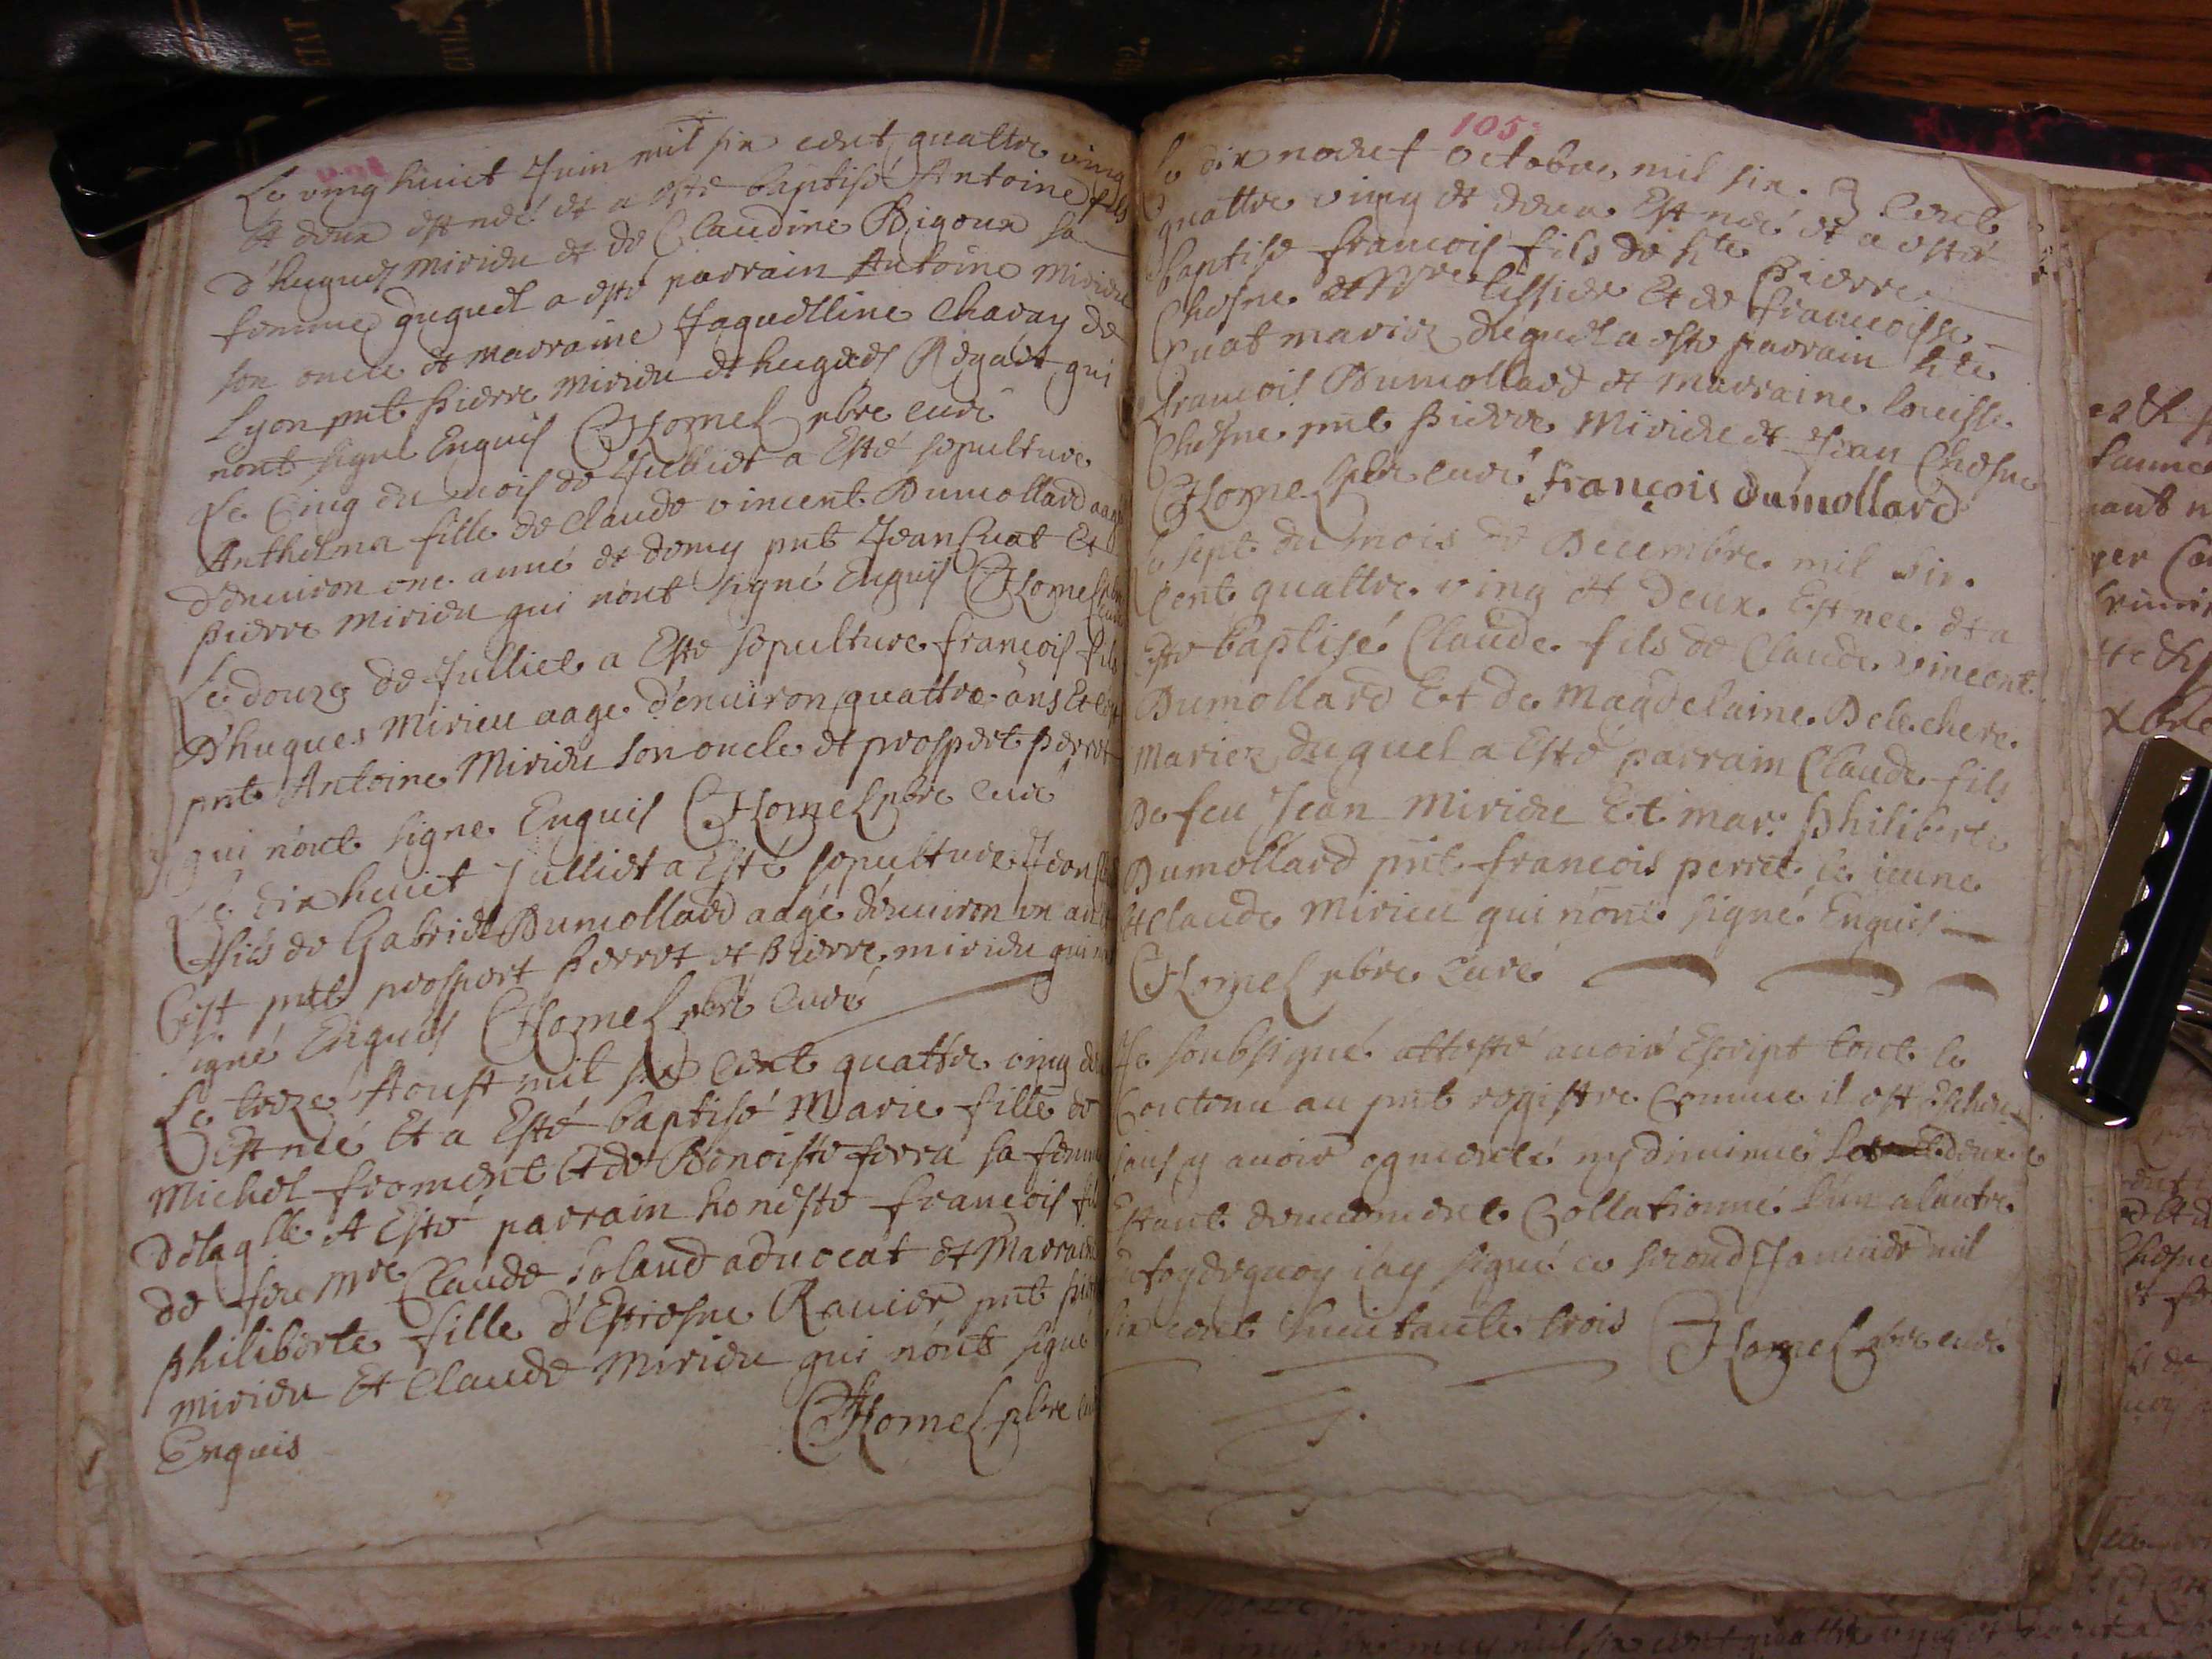 ETAT
CIVIL
Le ving huict Juin mil six cent quattre ving
Et deux est neé et a esté baptisé Antoine fils
d'hugues Mirieu et de Claudine Bigoux sa
femme duquel a esté parrain Antoine Mirieu
son oncle et marraine Jaquelline Chavay de
Lyon pnt pierre Mirieu et hugues Regait qui
nont signé Enquis CHomel pbre curé
Le Cinq du mois de Juilliet a Esté sepulture
Anthelma fille de Claude vincent Dumollard aagé
d'enuiron one anné et demy pnt Jean Cuat Et
pierre Mirieu qui nont signé Enquis CHomel pbre
curé
Le douze de Julliet a Esté sepulture francois fils
D'hugues Mirieu aage d'enuiron quattre ans Et
pnt Antoine Mirieu son oncle et prospert perret
qui nont signe Enquis CHomel pbre curé
Le dix huict Julliet a Esté sepulture Jean
fils de Gabriel Dumollard aagé d'enuiron un an
C'est pnt prospert perret et pierre mirieu qui
signé Enquis CHomel pbre curé
Le treze Aoust mil six Cent quattre ving
Est neé Et a Esté baptisé Marie fille de
Michel froment Et de Benoiste ferra sa femme
delaqlle A Esté parrain honeste francois
de feu Mre Claude Soland aduocat et Marraine
philiberte fille d'Estiesne Ravier pnt
mirieu Et Claude Mirieu qui nont signé
Enquis CHomel pbre
105
Le dix nœuf octobre mil six Cent
quattre ving et deux Est neé et a esté
baptisé francois fils de hte pierre
Chesne et de francoisse
Cuat mariez duquel a esté parrain hte
francois Dumollard et Marraine louisse
Chesne pnt pierre Mirieu et Jean Chesne
CHomel pbre curé françois dumollard
Le sept du mois de Decembre mil six
Cent quattre ving et Deux Est nee et a
Esté baptisé Claude fils de Claude vincent
Dumollard Et de Magdelaine Delechere
Mariez duquel a Esté parrain Claude fils
De feu Jean Mirieu Et mar: philiberte
Dumollard pnt francois perret le ieune
Et Claude Mirieu qui nont signé Enquis
CHomel pbre Curé
Je soubsigné atteste auoir Escript tout le
Contenu au pnt registre Comme il est Escheu
sans y auoir ogmenté ny diminué les deux
Estant deuement Collationné l'un a lautre
En foy dequoy iay signé ce second Januier mil
six cent huitante trois CHomel pbre curé